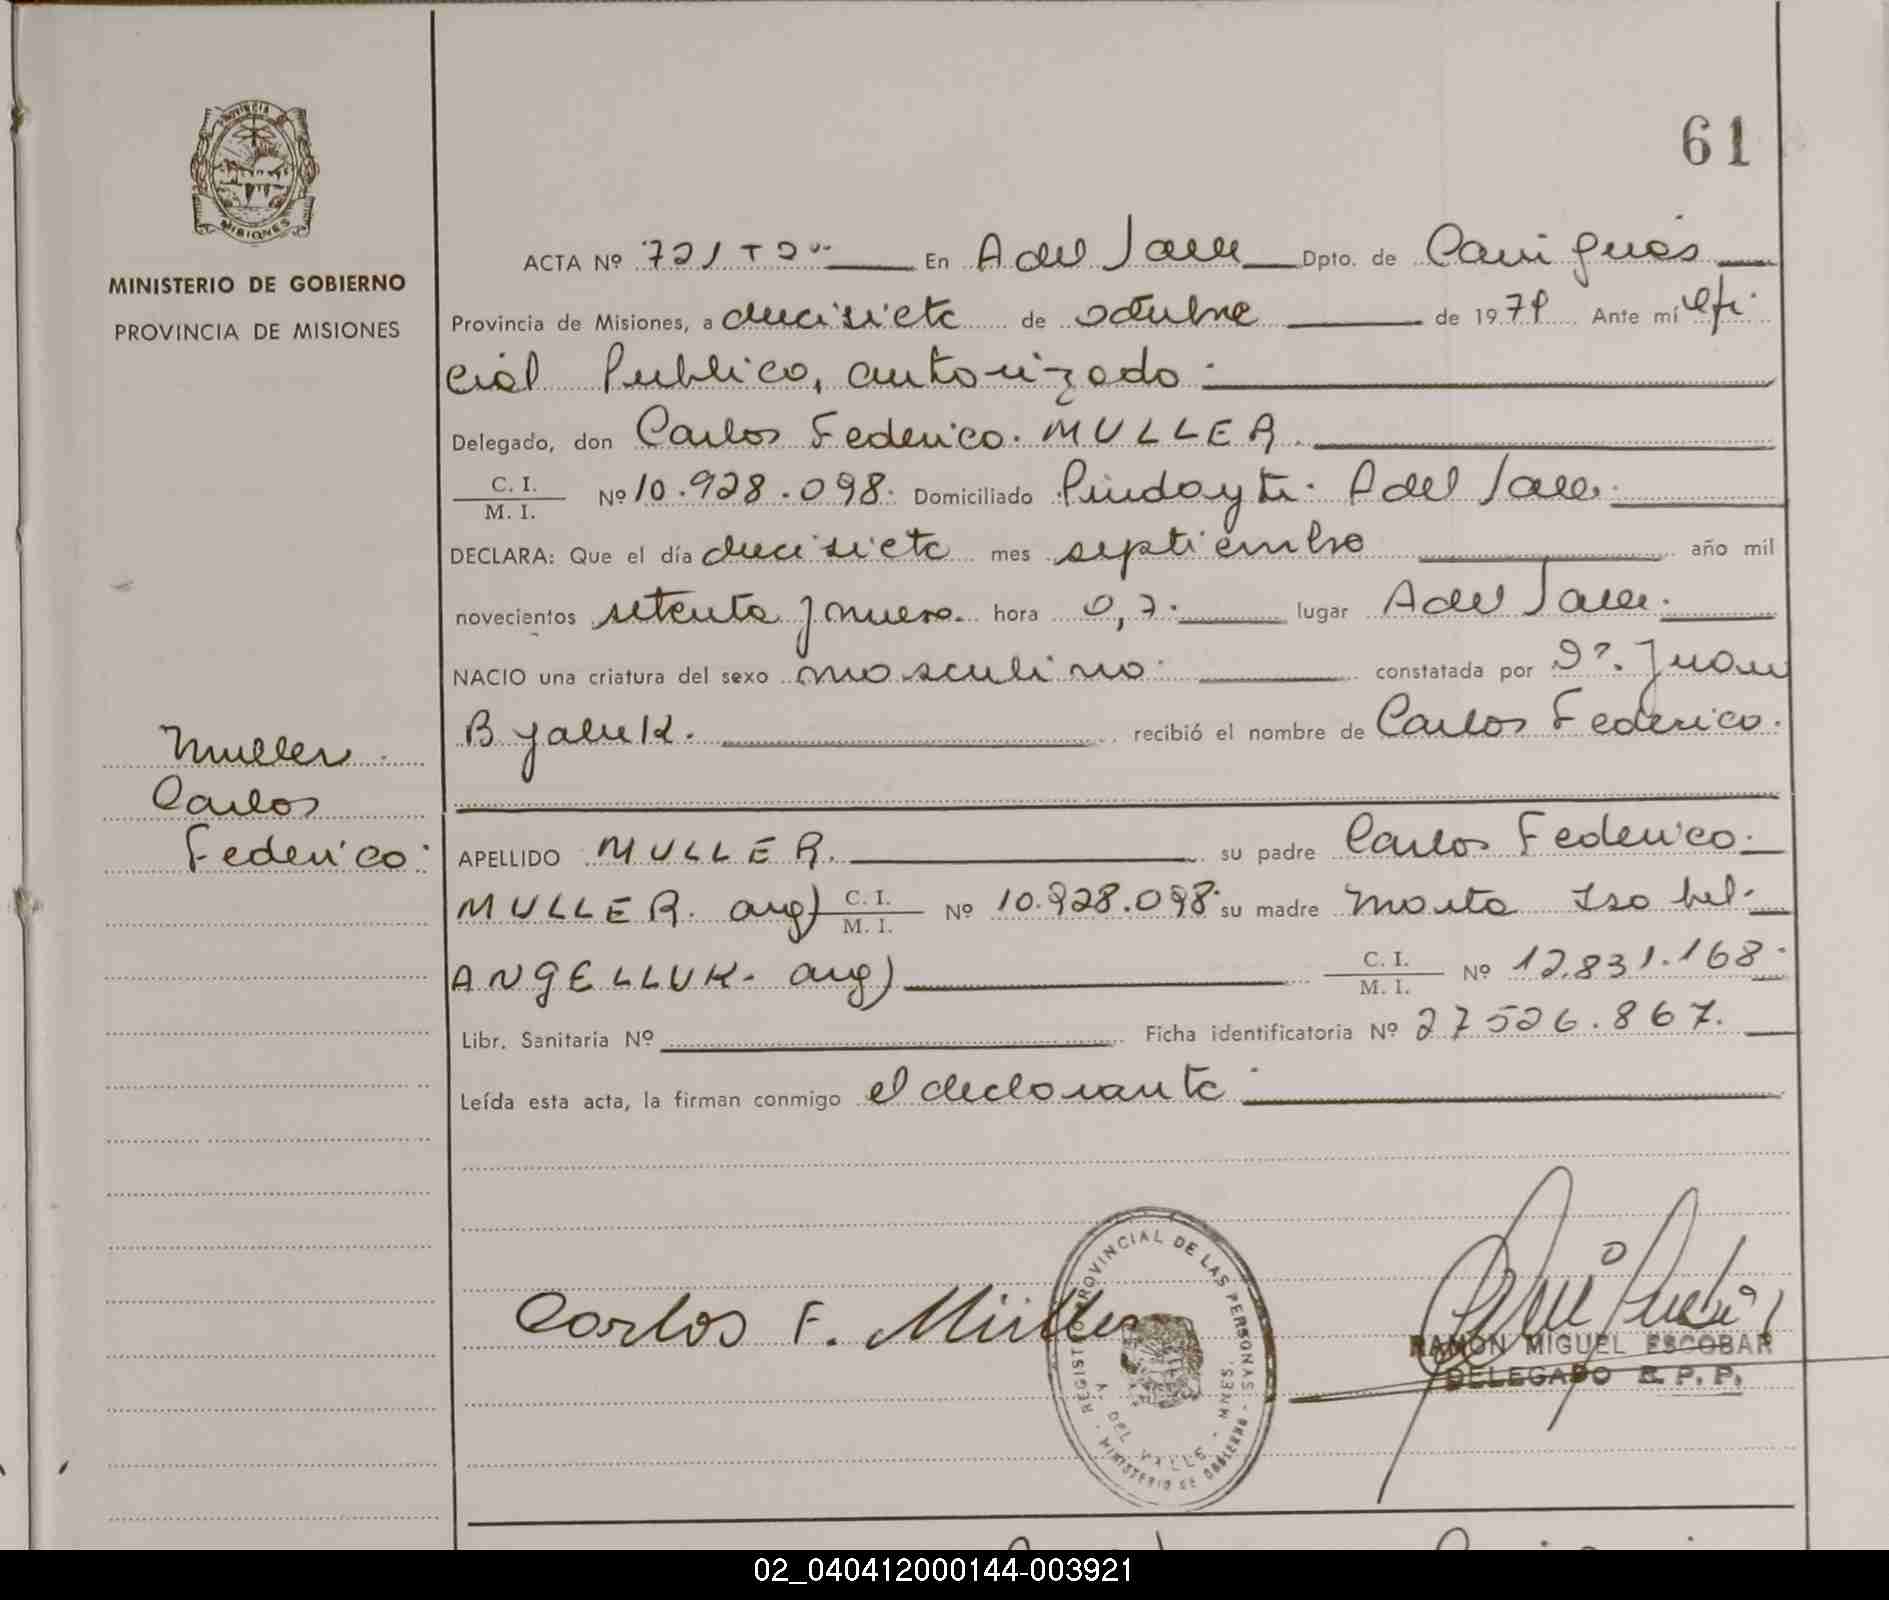 PROVINCIA
MISIONES
MINISTERIO DE GOBIERNO
PROVINCIA DE MISIONES
61
ACTA Nº 721 T 2º En A del Valle Dpto. de Cainguás
Provincia de Misiones, a diecisiete de octubre de 1979 Ante mí Ofi
cial Publico, autorizado
Delegado, don Carlos Federico. MULLER.
C. I.
M. I. Nº 10.928.098. Domiciliado Pindayti. A del Valle.
DECLARA: Que el día diecisiete mes septiembre año mil
novecientos setenta y nueve. hora 0,7. lugar A del Valle.
NACIO una criatura del sexo masculino constatada por Dr. Juan
Byaluk. recibió el nombre de Carlos Federico.
Muller
Carlos
Federico
APELLIDO MULLER. su padre Carlos Federico
MULLER. arg) C. I.
M. I. Nº 10.928.098 su madre Marta Isabel
ANGELLUK. arg) C. I.
M. I. Nº 12.831.168
Libr. Sanitaria Nº Ficha identificatoria Nº 27526.867.
Leída esta acta, la firman conmigo el declarante
Carlos F. Müller
REGISTRO PROVINCIAL DE LAS PERSONAS - MINISTERIO DE GOBIERNO
A. DEL VALLE - MNES.
RAMON MIGUEL ESCOBAR
DELEGADO R. P. P.
02_040412000144-003921